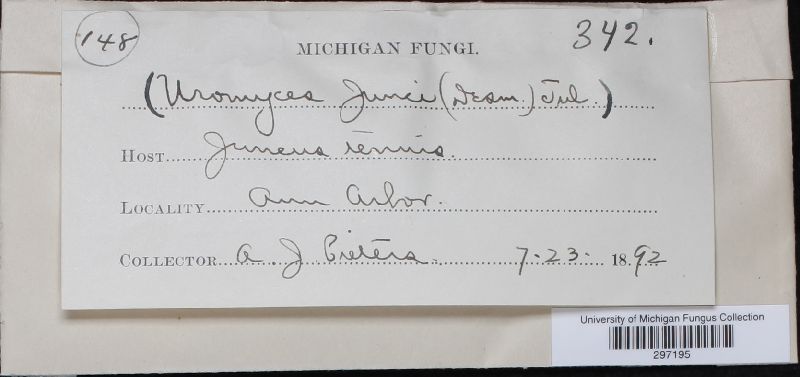 148
342.
MICHIGAN FUNGI.
(Uromyces Junci (Desm.) Tul.)
HOST Juncus tenuis.
LOCALITY Ann Arbor.
COLLECTOR A. J. Pieters. 7-23- 1892
University of Michigan Fungus Collection
297195